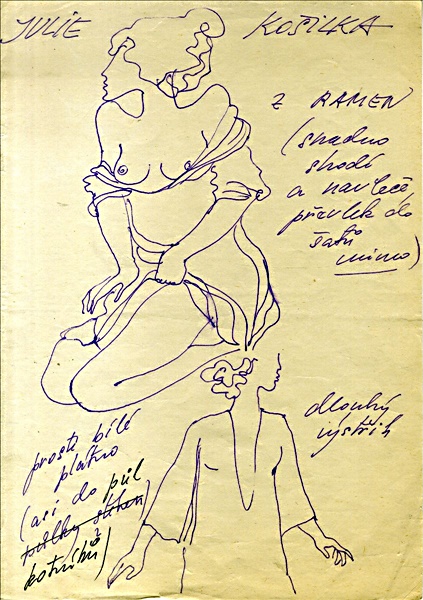 JULIE KOŠILKA
Z RAMEN
(snadno
shodí
a navleče,
převlek do
šatů
mimo)
dlouhý
výstřih
prosté bílé
plátno
(asi do půl
půlky stehen
kotníků)